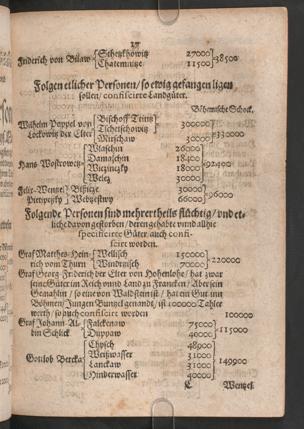 27
Friderich von Bilaw { Schetzkhowitz 27000 } 38500
Chatemnitze 11500
Folgen etlicher Personen / so ewig gefangen ligen
sollen / confiscirte Landgüter.
Böhemische Schock.
Wilhelm Poppel von { Bischoff Teinitz } 300000
Lockowitz der Elter Tschetschowitz 330000
Mirschaw 30000
Hans Wostrowetz { Wlaschin 26000
Damaschin 18400 92400
18000
Weletz 30000
Felix Wentzel { 30000 } 96000
Pietipetzky 66000
Folgende Personen sind mehrertheils flüchtig / und etliche
davon gestorben / deren gehabte unnd allhie
specificirte Güter auch confiscirt
worden.
Graf Matthes Hein- { Wellisch 150000 } 220000
rich vom Thurn Windruisch 70000
Graf Georg Friderich der Elter von Hohenlohe / hat zwar
seine Güter im Reich unnd Land zu Francken / Aber sein
Gemahlin / so eine von Waldstein ist / hat ein Gut inn
Böhmen / Jungen Buntzel genandt / ist 100000 Tahler
werth / so auch confiscirt worden 100000
Graf Johann Al- { Falckenaw 75000 } 115000
bin Schlick Duppaw 40000
Gottlob Bercka { Chysch 48900
Weißwasser 31000 149900
Lanckaw 31000
Hinderwasser 40000
C Wentzel